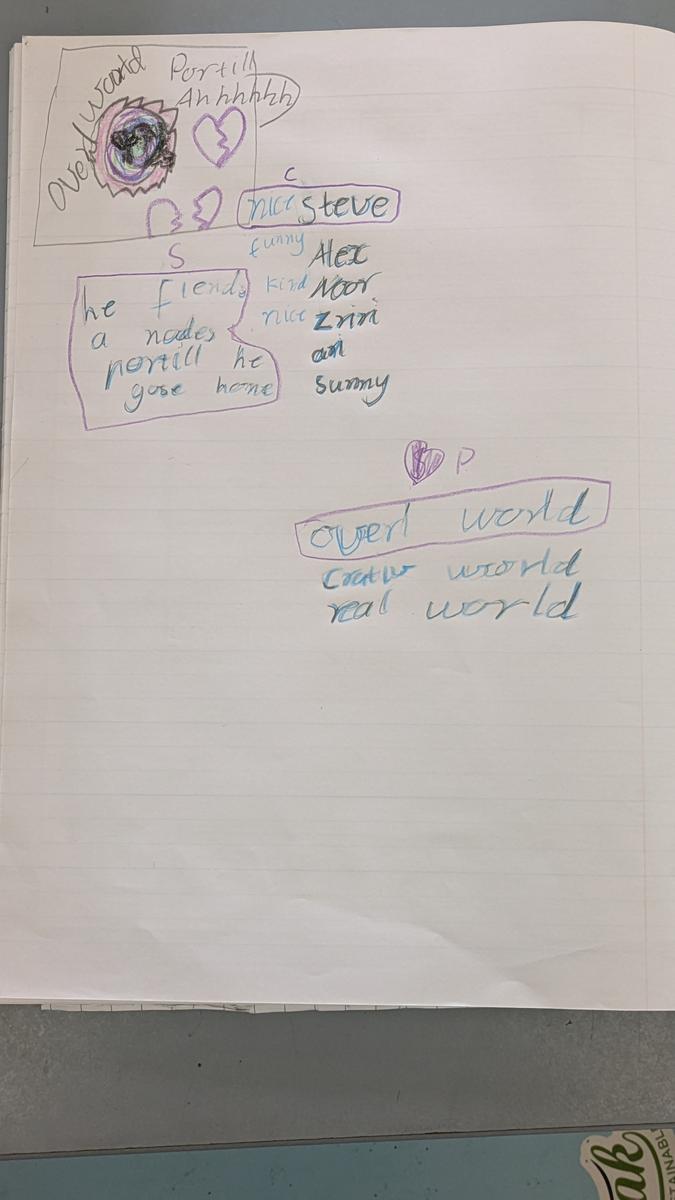 Overl world
Portill
Ahhhhhh
C
nice Steve
funny Alex
kind Noor
nice Zriri
ari
Sunny
S
he fiends
a nodes
portill he
gose home
P
overl world
Crativ world
real world
ak
TAINABL